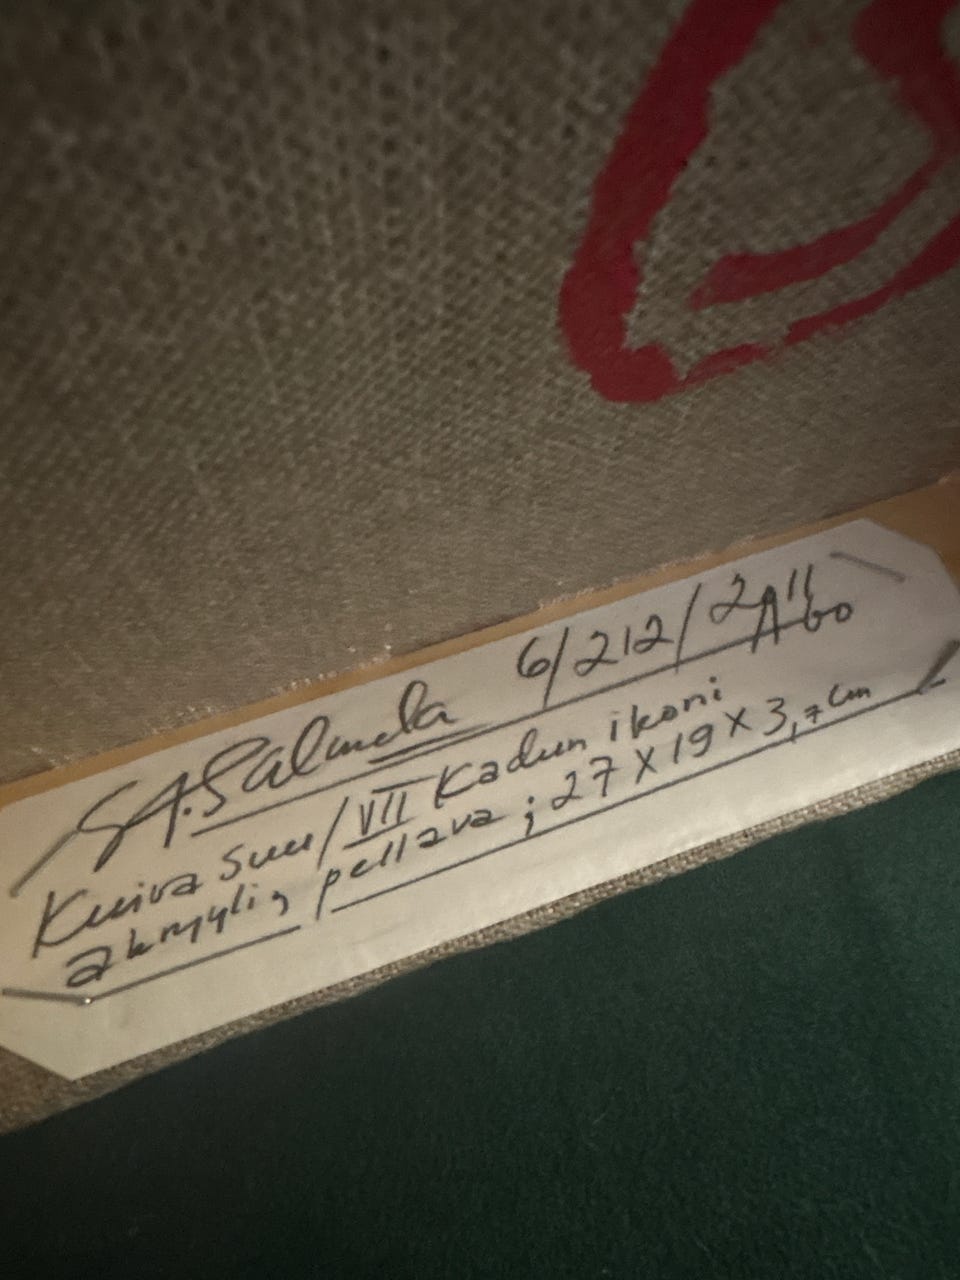 6/212/2011
Åbo
Kuiva suu/VII Kadun ikoni
akryyli, pellava; 27 X 19 X 3,7 cm